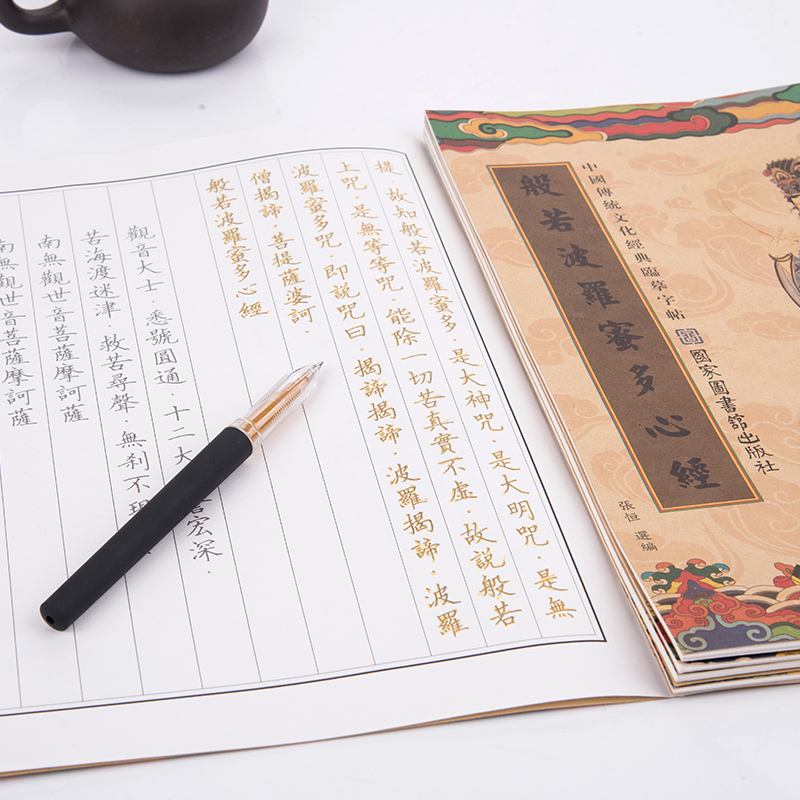 中國傳統文化經典臨摹字帖
般若波羅蜜多心經
國家圖書館出版社
張恒 選編
提·故知般若波羅蜜多·是大神咒·是大明咒·是無
上咒·是無等等咒·能除一切苦真實不虛·故説般若
波羅蜜多咒·即説咒曰·揭諦揭諦·波羅揭諦·波羅
僧揭諦·菩提薩婆訶·
般若波羅蜜多心經
觀音大士·悉號圓通·十二大宏深·
苦海渡迷津·救苦尋聲·無刹不現
南無觀世音菩薩摩訶薩
南無觀世音菩薩摩訶薩